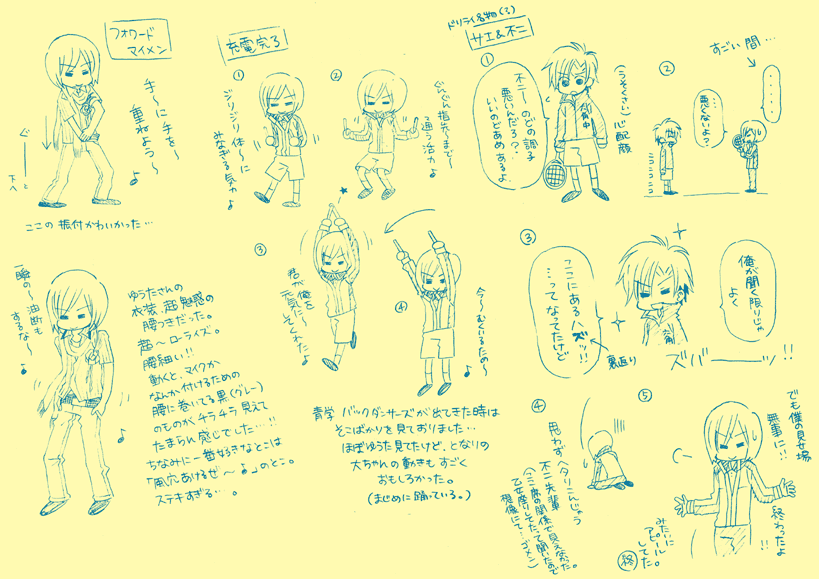 フォワード
マイメン
手〜に手を〜
重ねよう〜♪
ぐ〜
下へ
ここの振付かわいかった…
一瞬の〜油断も
するな〜
♪
ゆうたさんの
衣装、超魅惑の
腰つきだった。
超〜ローライズ。
腰細い!!
動くと、マイクか
なんか付けるための
腰に巻いてる黒(グレー)
のものがチラチラ見えて
たまらん感じでした…!!
ちなみに一番好きなとこは
「風穴あけるぜ〜♪」のとこ。
ステキすぎる…。
充電完了
①
ジリジリ体〜に
みなぎる気力よ
②
ぐんぐん指先〜まで〜
通う活力よ
③
君が俺を
元気にしてくれたよ
④
今〜むくいるため〜
♪
青学バックダンサーズが出てきた時は
そこばかりを見ておりました…
ほぼゆうた見てたけど、となりの
大ちゃんの動きもすごく
おもしろかった。
(まじめに踊っている。)
ドリライ名物(?)
サエ&不二
①
不二ーのどの調子
悪いんだろ?…
いいのどあめあるよ
(うそくさい)心配顔
②
すごい間…
・・・・
…
悪くないよ?
ニコニコニコ
③
俺が聞く限りじゃ
よく
ここにあるハズッ!!
…ってなってたけど
裏返り
六角
ズバーーッ!!
④
思わずヘタりこんじゃう
不二先輩
(ここ席の関係で見えなかった。
乙女座りしてたって聞いたので
想像にて…ゴメン)
⑤
でも僕の見せ場
無事に!!
終わったよ
!!
みたいに
アピール
してた。
終